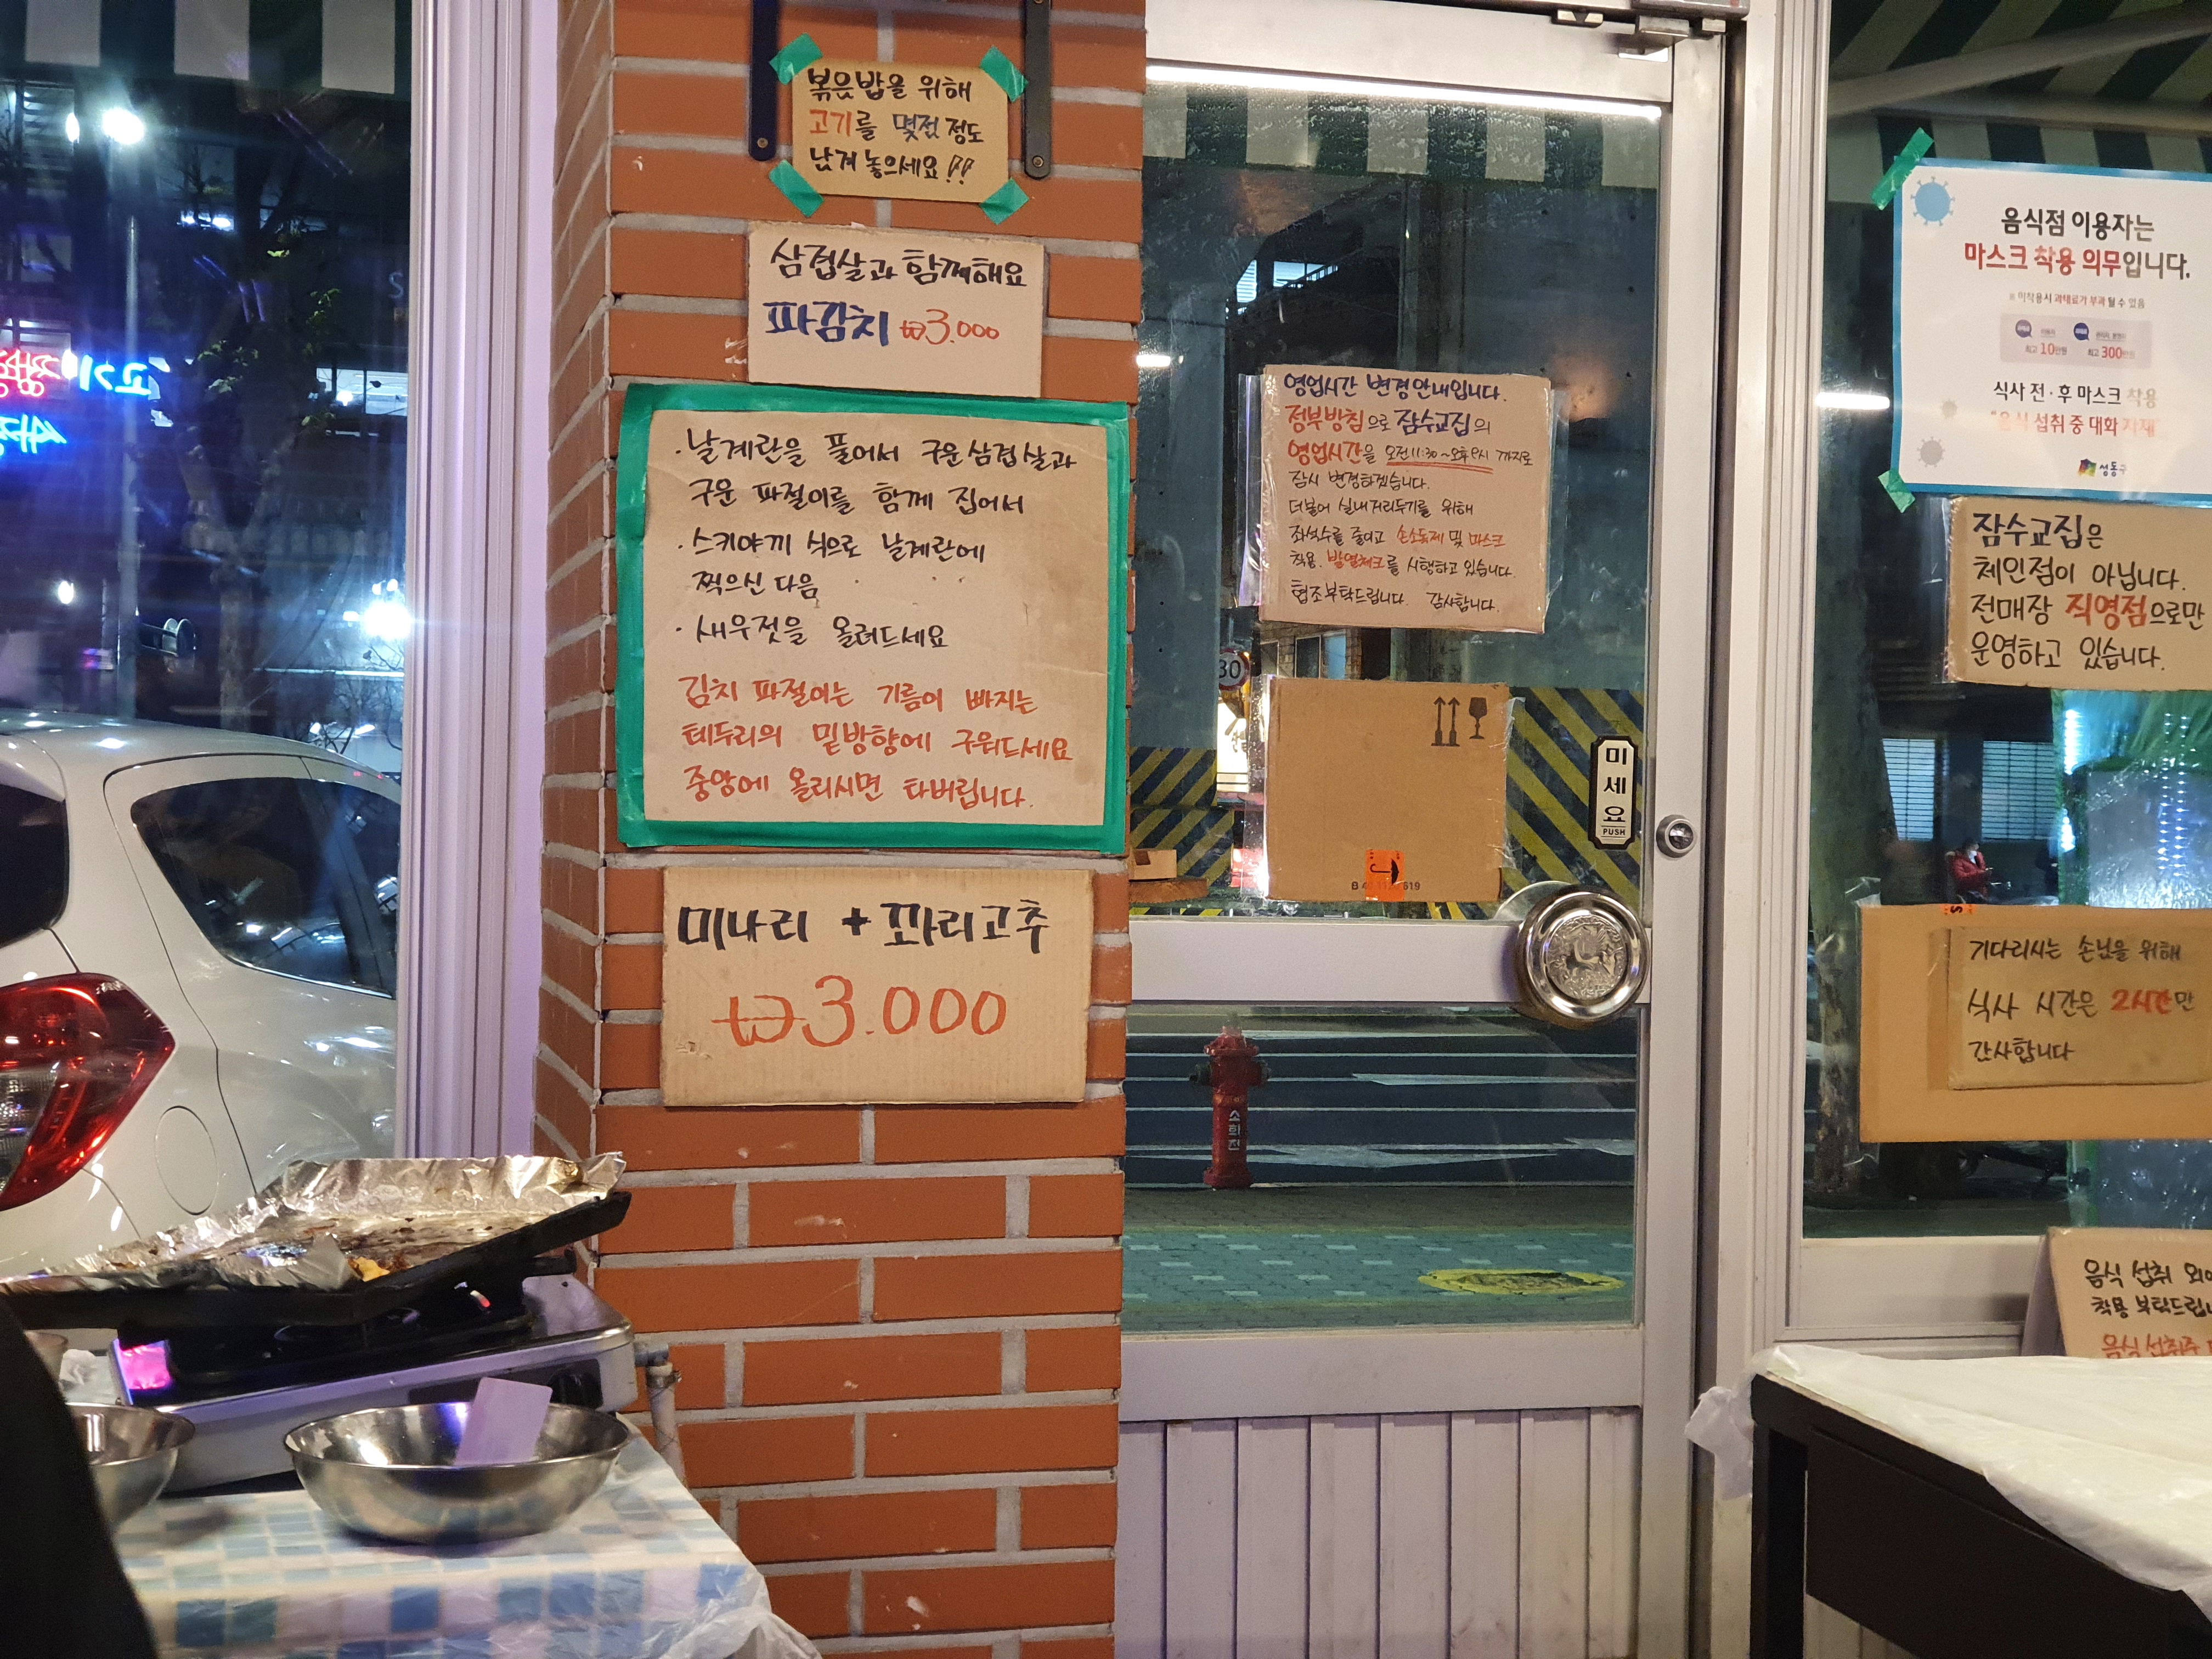 볶음밥을 위해
고기를 몇점 정도
남겨 놓으세요!!
삼겹살과 함께해요
파김치 ₩3.000
· 날계란을 풀어서 구운삼겹살과
구운 파절이를 함께 집어서
· 스키야끼 식으로 날계란에
찍으신 다음
· 새우젓을 올려드세요
김치 파절이는 기름이 빠지는
테두리의 밑방향에 구워드세요
중앙에 올리시면 타버립니다.
미나리 + 꽈리고추
₩3.000
영업시간 변경안내입니다.
정부방침으로 잠수교집의
영업시간을 오전11:30~오후9시 까지로
잠시 변경하겠습니다.
더불어 실내거리두기를 위해
좌석수를 줄이고 손소독제 및 마스크
착용, 발열체크를 시행하고 있습니다.
협조부탁드립니다. 감사합니다.
30
미세요
PUSH
소화전
음식점 이용자는
마스크 착용 의무입니다.
※ 미착용시 과태료가 부과될 수 있음
최고 10만원
최고 300만원
식사 전·후 마스크 착용
"음식 섭취 중 대화 자제"
성동구
잠수교집은
체인점이 아닙니다.
전매장 직영점으로만
운영하고 있습니다.
기다리시는 손님을 위해
식사 시간은 2시간만
감사합니다
음식 섭취 외에
착용 부탁드립니
음식 섭취중
고기